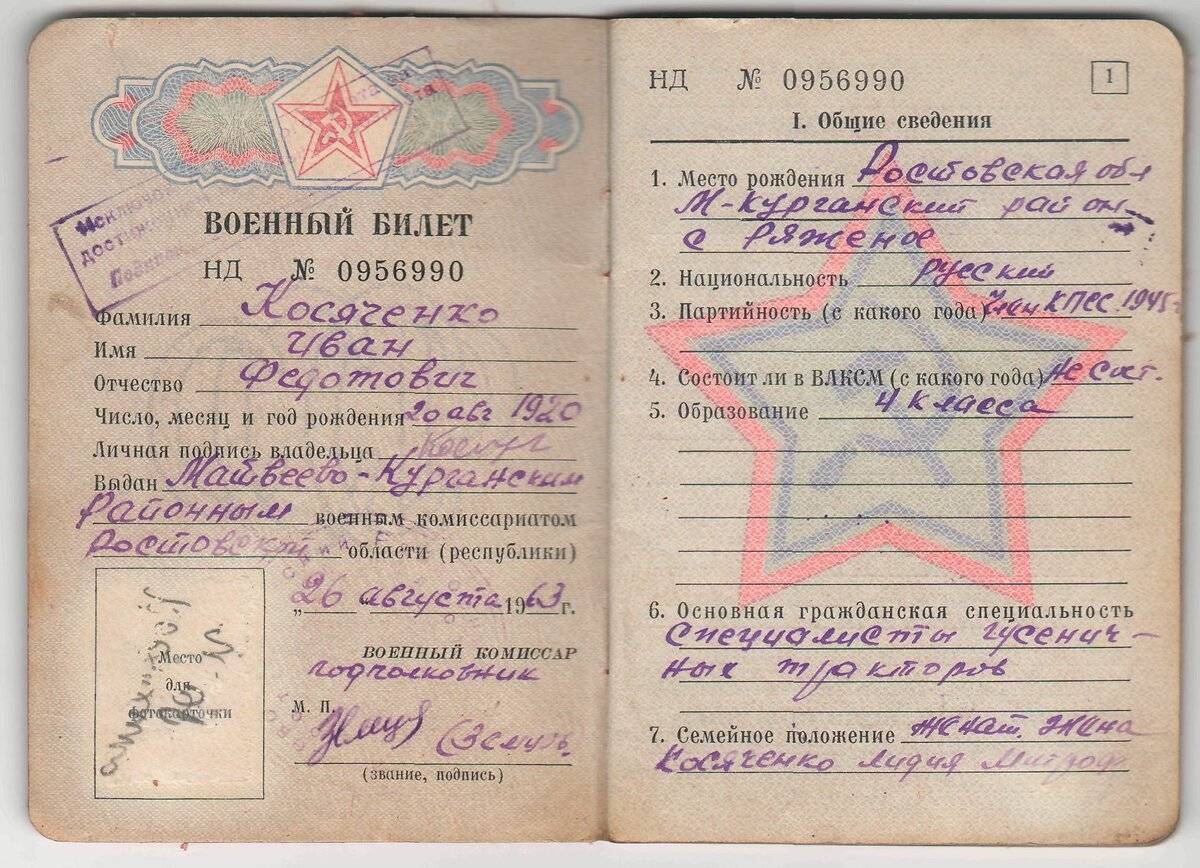 Исключ
достиж
ВОЕННЫЙ БИЛЕТ
НД № 0956990
Фамилия Косяченко
Имя Иван
Отчество Федотович
Число, месяц и год рождения 20 авг 1920
Личная подпись владельца
Выдан Матвеево-Курганским
Районным военным комиссариатом
Ростовской области (республики)
„26 августа 1963 г.
ВОЕННЫЙ КОМИССАР
подполковник
М. П.
(звание, подпись)
Место
для
фотокарточки
НД № 0956990
1
I. Общие сведения
1. Место рождения Ростовская обл
М-Курганский район
с Ряженое
2. Национальность русский
3. Партийность (с какого года) член КПСС 1945 г
4. Состоит ли в ВЛКСМ (с какого года) не сост.
5. Образование 4 класса
6. Основная гражданская специальность
специалисты гусенич-
ных тракторов
7. Семейное положение женат. жена
Косяченко Лидия Митроф